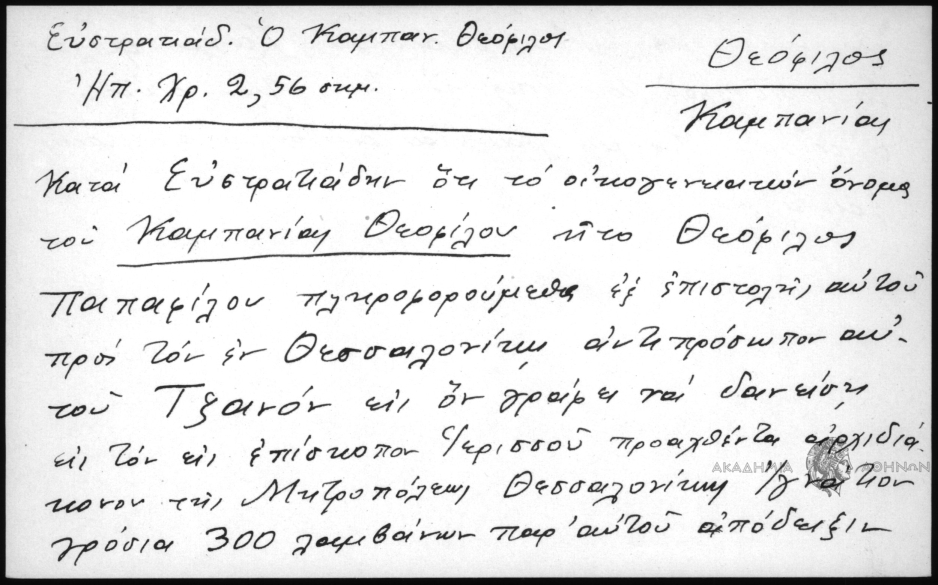 Εὐστρατιάδ. Ὁ Καμπαν. Θεόφιλος
Ἠπ. Χρ. 2, 56 σημ.
Θεόφιλος
Καμπανίας
Κατά Εὐστρατιάδην ὅτι τό οἰκογενειακόν ὄνομα
τοῦ Καμπανίας Θεοφίλου ἦτο Θεόφιλος
Παπαφίλου πληροφορούμεθα ἐξ ἐπιστολῆς αὐτοῦ
πρός τόν ἐν Θεσσαλονίκῃ ἀντιπρόσωπον αὐ-
τοῦ Τζανόν εἰς ὅν γράφει νά δανείσῃ
εἰς τόν εἰς ἐπίσκοπον Ἱερισσοῦ προαχθέντα ἀρχιδιά-
κονον τῆς Μητροπόλεως Θεσσαλονίκης Ἰγνάτιον
γρόσια 300 λαμβάνων παρ' αὐτοῦ ἀπόδειξιν
ΑΚΑΔΗΜΙΑ ΑΘΗΝΩΝ